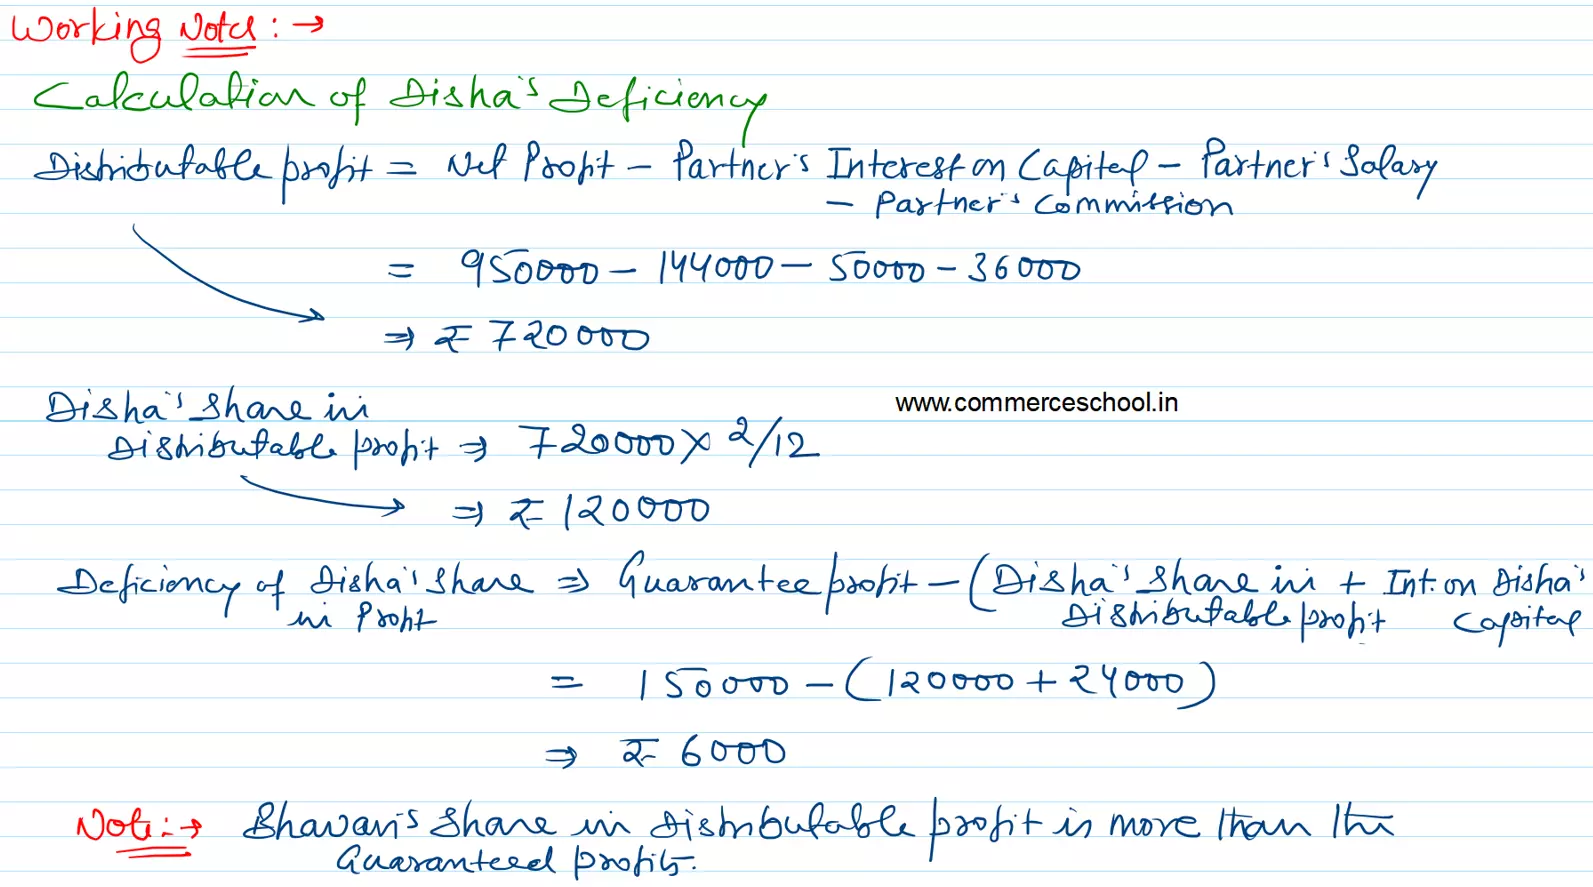 Working Notes : →
Calculation of Disha's Deficiency
Distributable profit = Net Profit - Partner's Interest on Capital - Partner's Salary
- Partner's Commission
= 950000 - 144000 - 50000 - 36000
⇒ ₹ 720000
Disha's share in
Distributable profit ⇒ 720000 × 2/12
www.commerceschool.in
⇒ ₹ 120000
Deficiency of Disha's share ⇒ Guarantee profit - (Disha's share in + Int. on Disha's
in Profit Distributable profit Capital
= 150000 - (120000 + 24000)
⇒ ₹ 6000
Note :→ Bhavan's share in Distributable profit is more than the
Guaranteed profits.